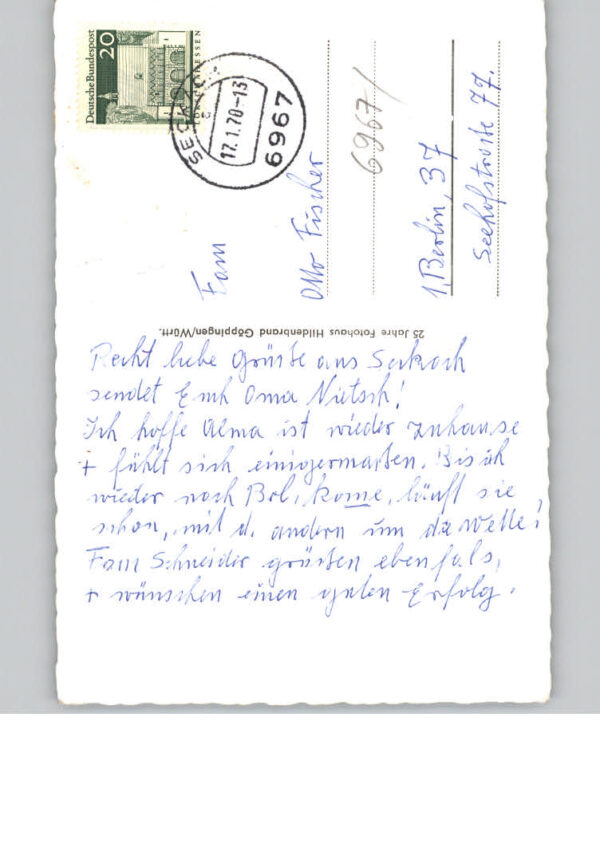 Deutsche Bundespost
20
SECKACH
17.1.70-13
6967
6967/
Fam
Otto Fischer
1, Berlin, 37
Seehofstraße 77.
25 Jahre Fotohaus Hildenbrand Göppingen/Württ.
Recht liebe Grüße aus Seckach
sendet Euch Oma Nietsch!
Ich hoffe Alma ist wieder zuhause
+ fühlt sich einigermaßen. Bis ich
wieder nach Bln, kome, läuft sie
schon, mit d. andern um die Wette!
Fam Schneider grüßen ebenfals,
+ wünschen einen guten Erfolg.